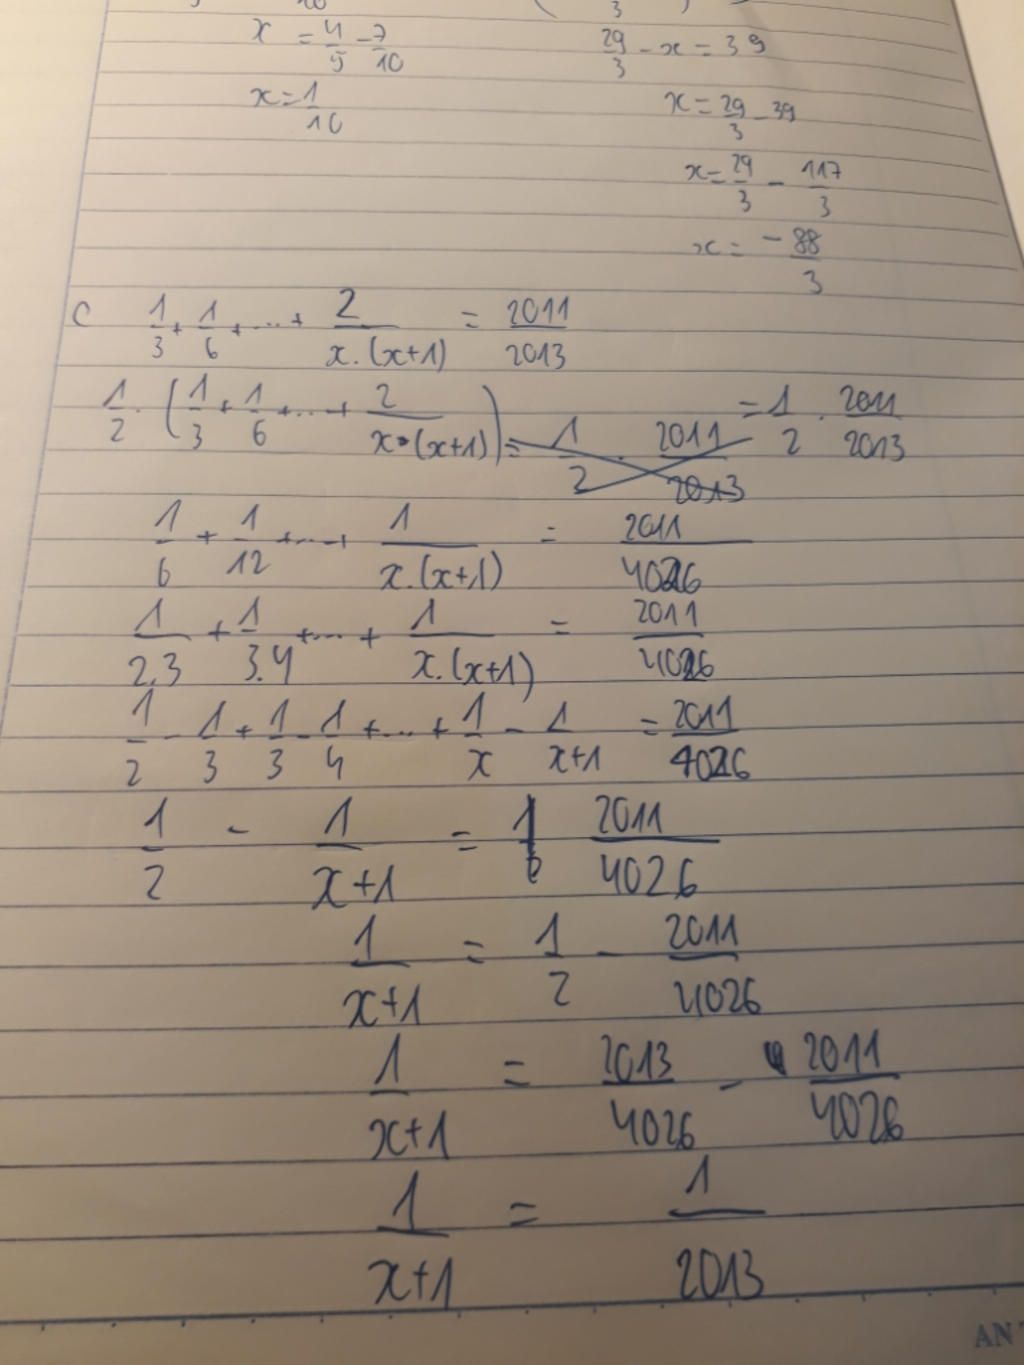 x = 4/5 - 7/10
29/3 - x = 39
x = 1/10
x = 29/3 - 39
x = 29/3 - 117/3
x = -88/3
c 1/3 + 1/6 + ... + 2/x.(x+1) = 2011/2013
1/2 . (1/3 + 1/6 + ... + 2/x.(x+1)) = 1/2 . 2011/2013 = 1/2 . 2011/2013
1/6 + 1/12 + ... + 1/x.(x+1) = 2011/4026
1/2.3 + 1/3.4 + ... + 1/x.(x+1) = 2011/4026
1/2 - 1/3 + 1/3 - 1/4 + ... + 1/x - 1/x+1 = 2011/4026
1/2 - 1/x+1 = 2011/4026
1/x+1 = 1/2 - 2011/4026
1/x+1 = 2013/4026 - 2011/4026
1/x+1 = 1/2013